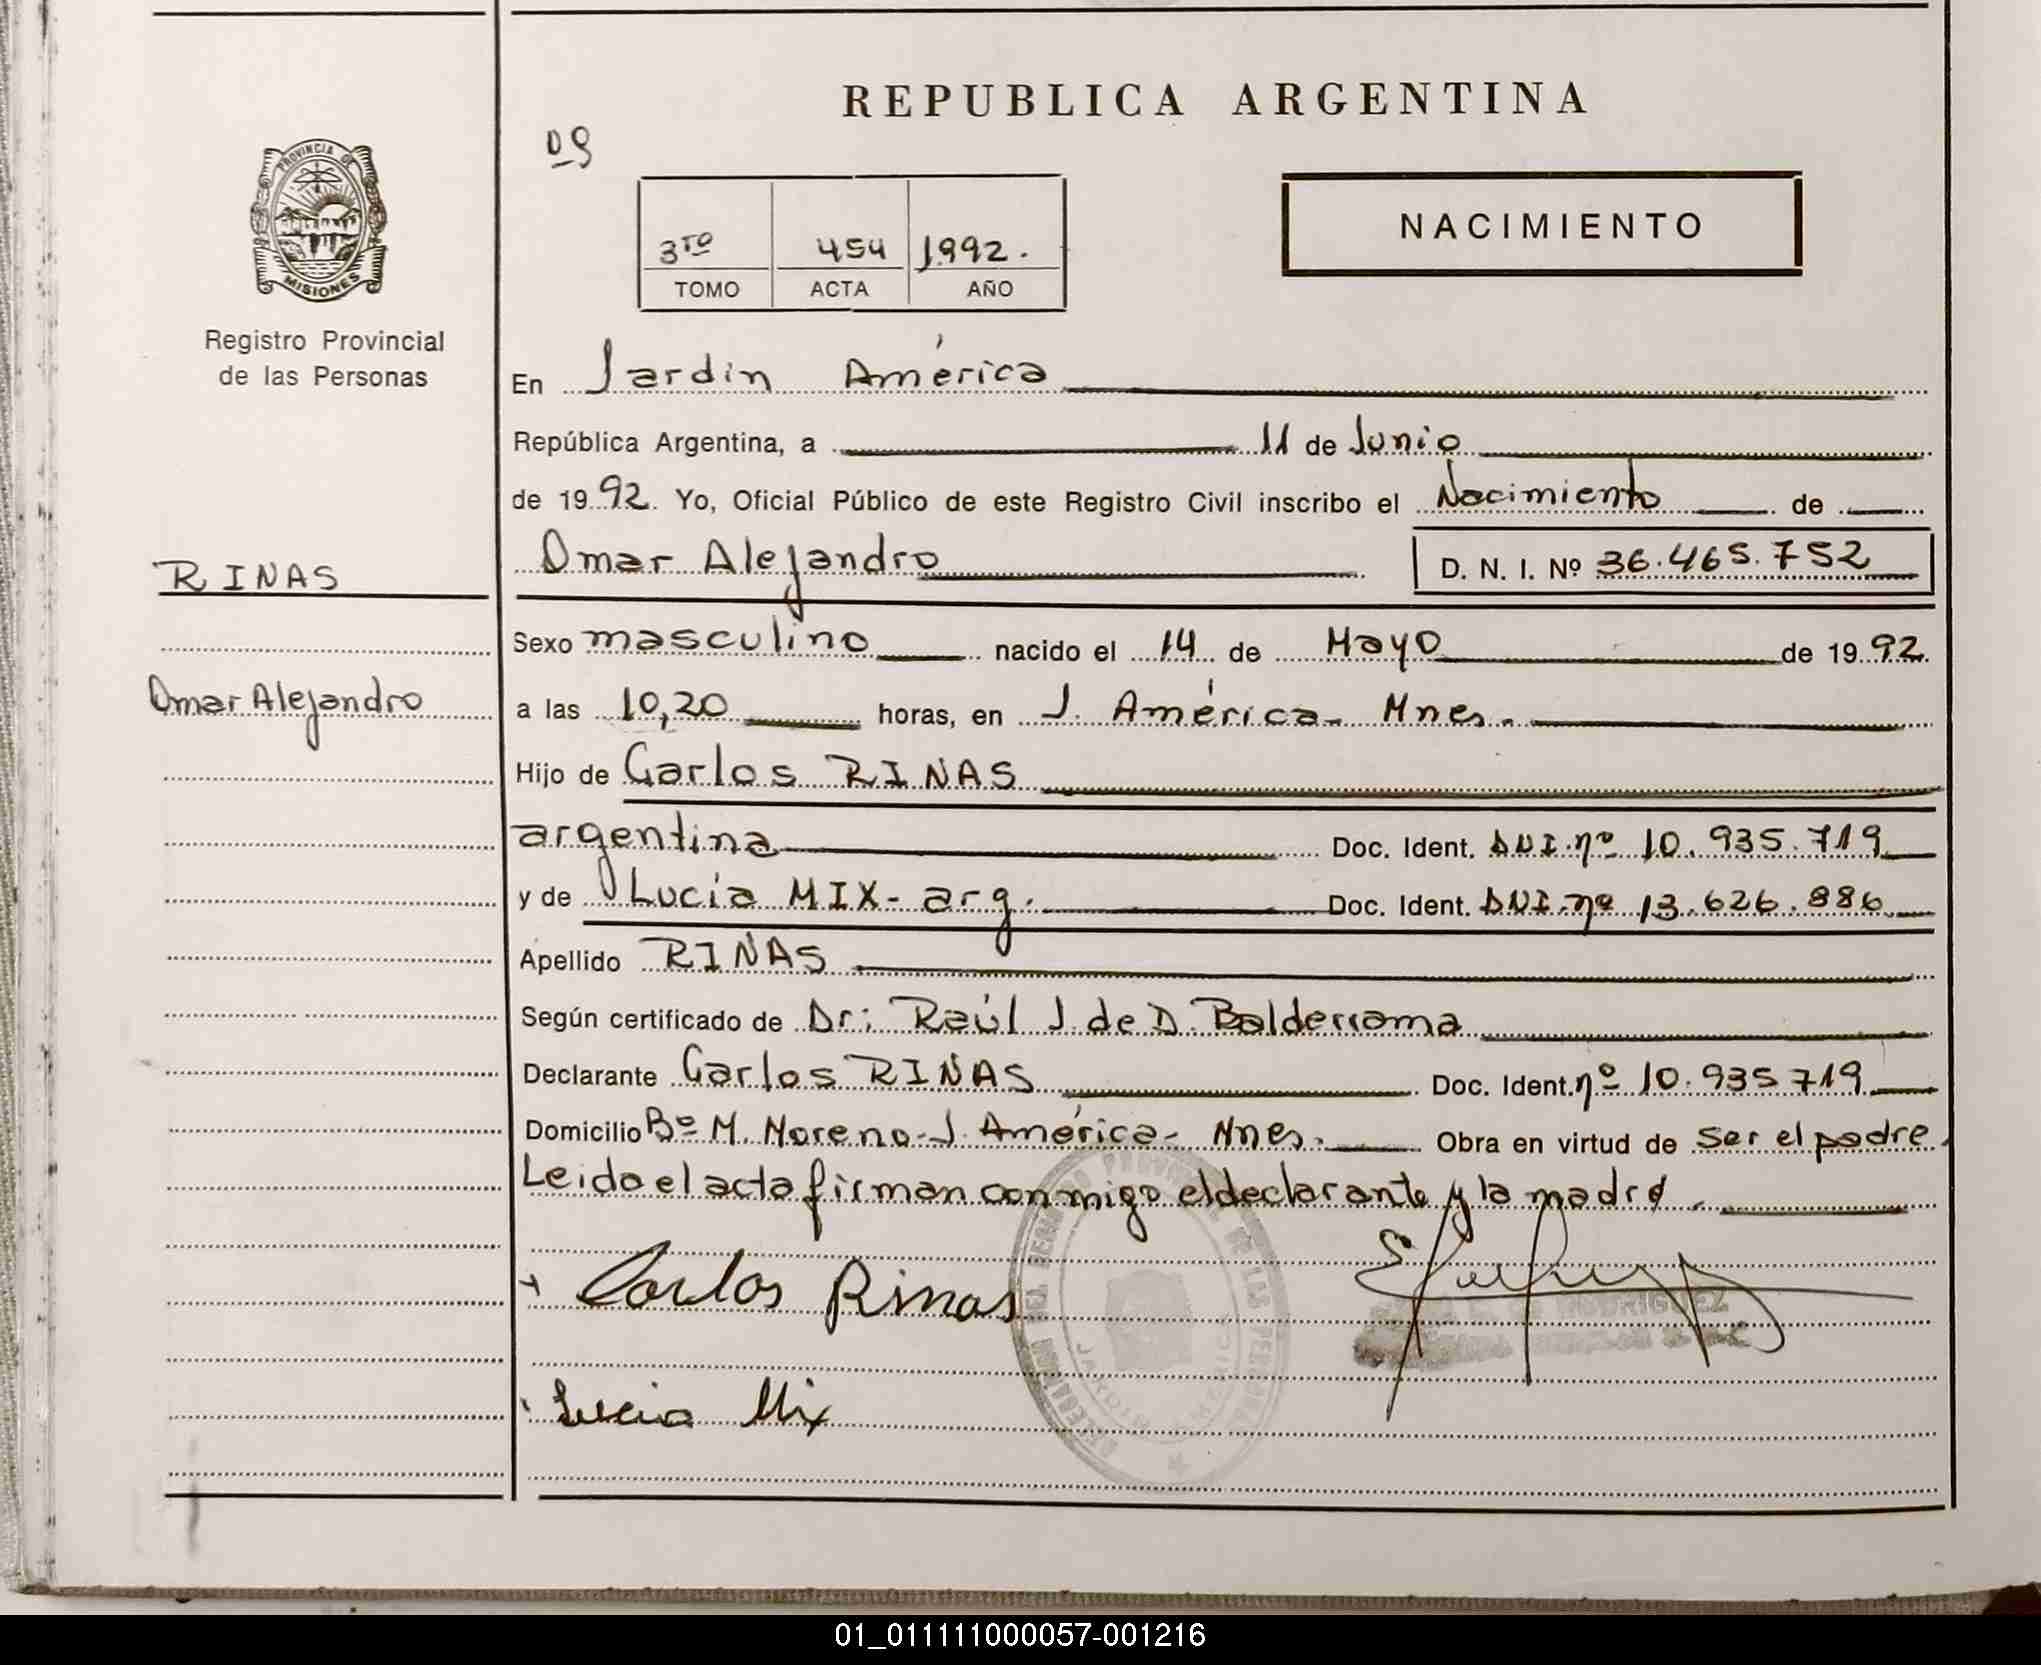 REPUBLICA ARGENTINA
09
PROVINCIA DE
MISIONES
Registro Provincial
de las Personas
3ro 454 1992.
TOMO ACTA AÑO
NACIMIENTO
En Jardin América
República Argentina, a 11 de Junio
de 1992. Yo, Oficial Público de este Registro Civil inscribo el Nacimiento de
RINAS
Omar Alejandro D. N. I. Nº 36.465.752
Sexo masculino nacido el 14 de Mayo de 1992.
Omar Alejandro
a las 10,20 horas, en J. América - Mnes.
Hijo de Carlos RINAS
argentina Doc. Ident. DNI. nº 10.935.719
y de Lucía MIX - arg. Doc. Ident. DNI. nº 13.626.886
Apellido RINAS
Según certificado de Dr: Raúl J. de D. Balderrama
Declarante Carlos RINAS Doc. Ident. nº 10.935719
Domicilio Bº M. Moreno - J. América - Mnes. Obra en virtud de ser el padre.
Leido el acta firman conmigo el declarante y la madre.
Carlos Rinas
RODRIGUEZ
Lucia Mix
01_011111000057-001216